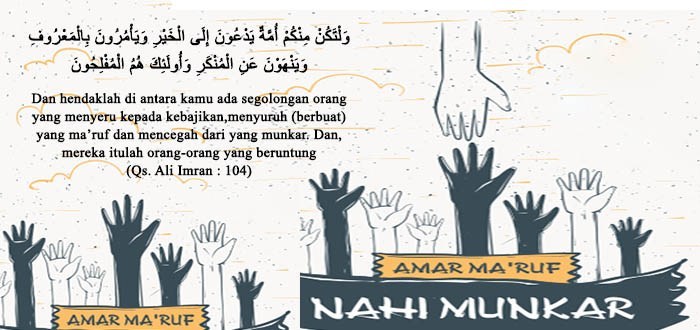 وَلْتَكُنْ مِنْكُمْ أُمَّةٌ يَدْعُونَ إِلَى الْخَيْرِ وَيَأْمُرُونَ بِالْمَعْرُوفِ
وَيَنْهَوْنَ عَنِ الْمُنْكَرِ وَأُولَئِكَ هُمُ الْمُفْلِحُونَ
Dan hendaklah di antara kamu ada segolongan orang
yang menyeru kepada kebajikan,menyuruh (berbuat)
yang ma'ruf dan mencegah dari yang munkar. Dan,
mereka itulah orang-orang yang beruntung
(Qs. Ali Imran : 104)
AMAR MA'RUF
AMAR MA'RUF
NAHI MUNKAR